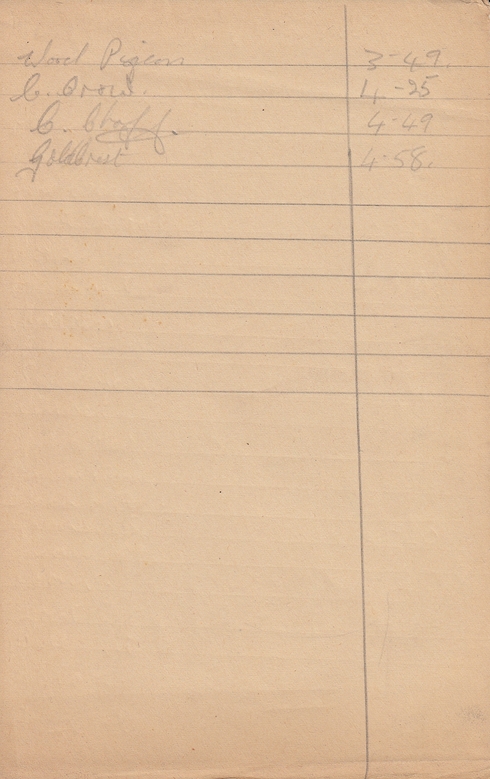 Wood Pigeon 3-49.
C. Crow. 4-25
C. Chaff. 4-49
GoldCrest 4-58.